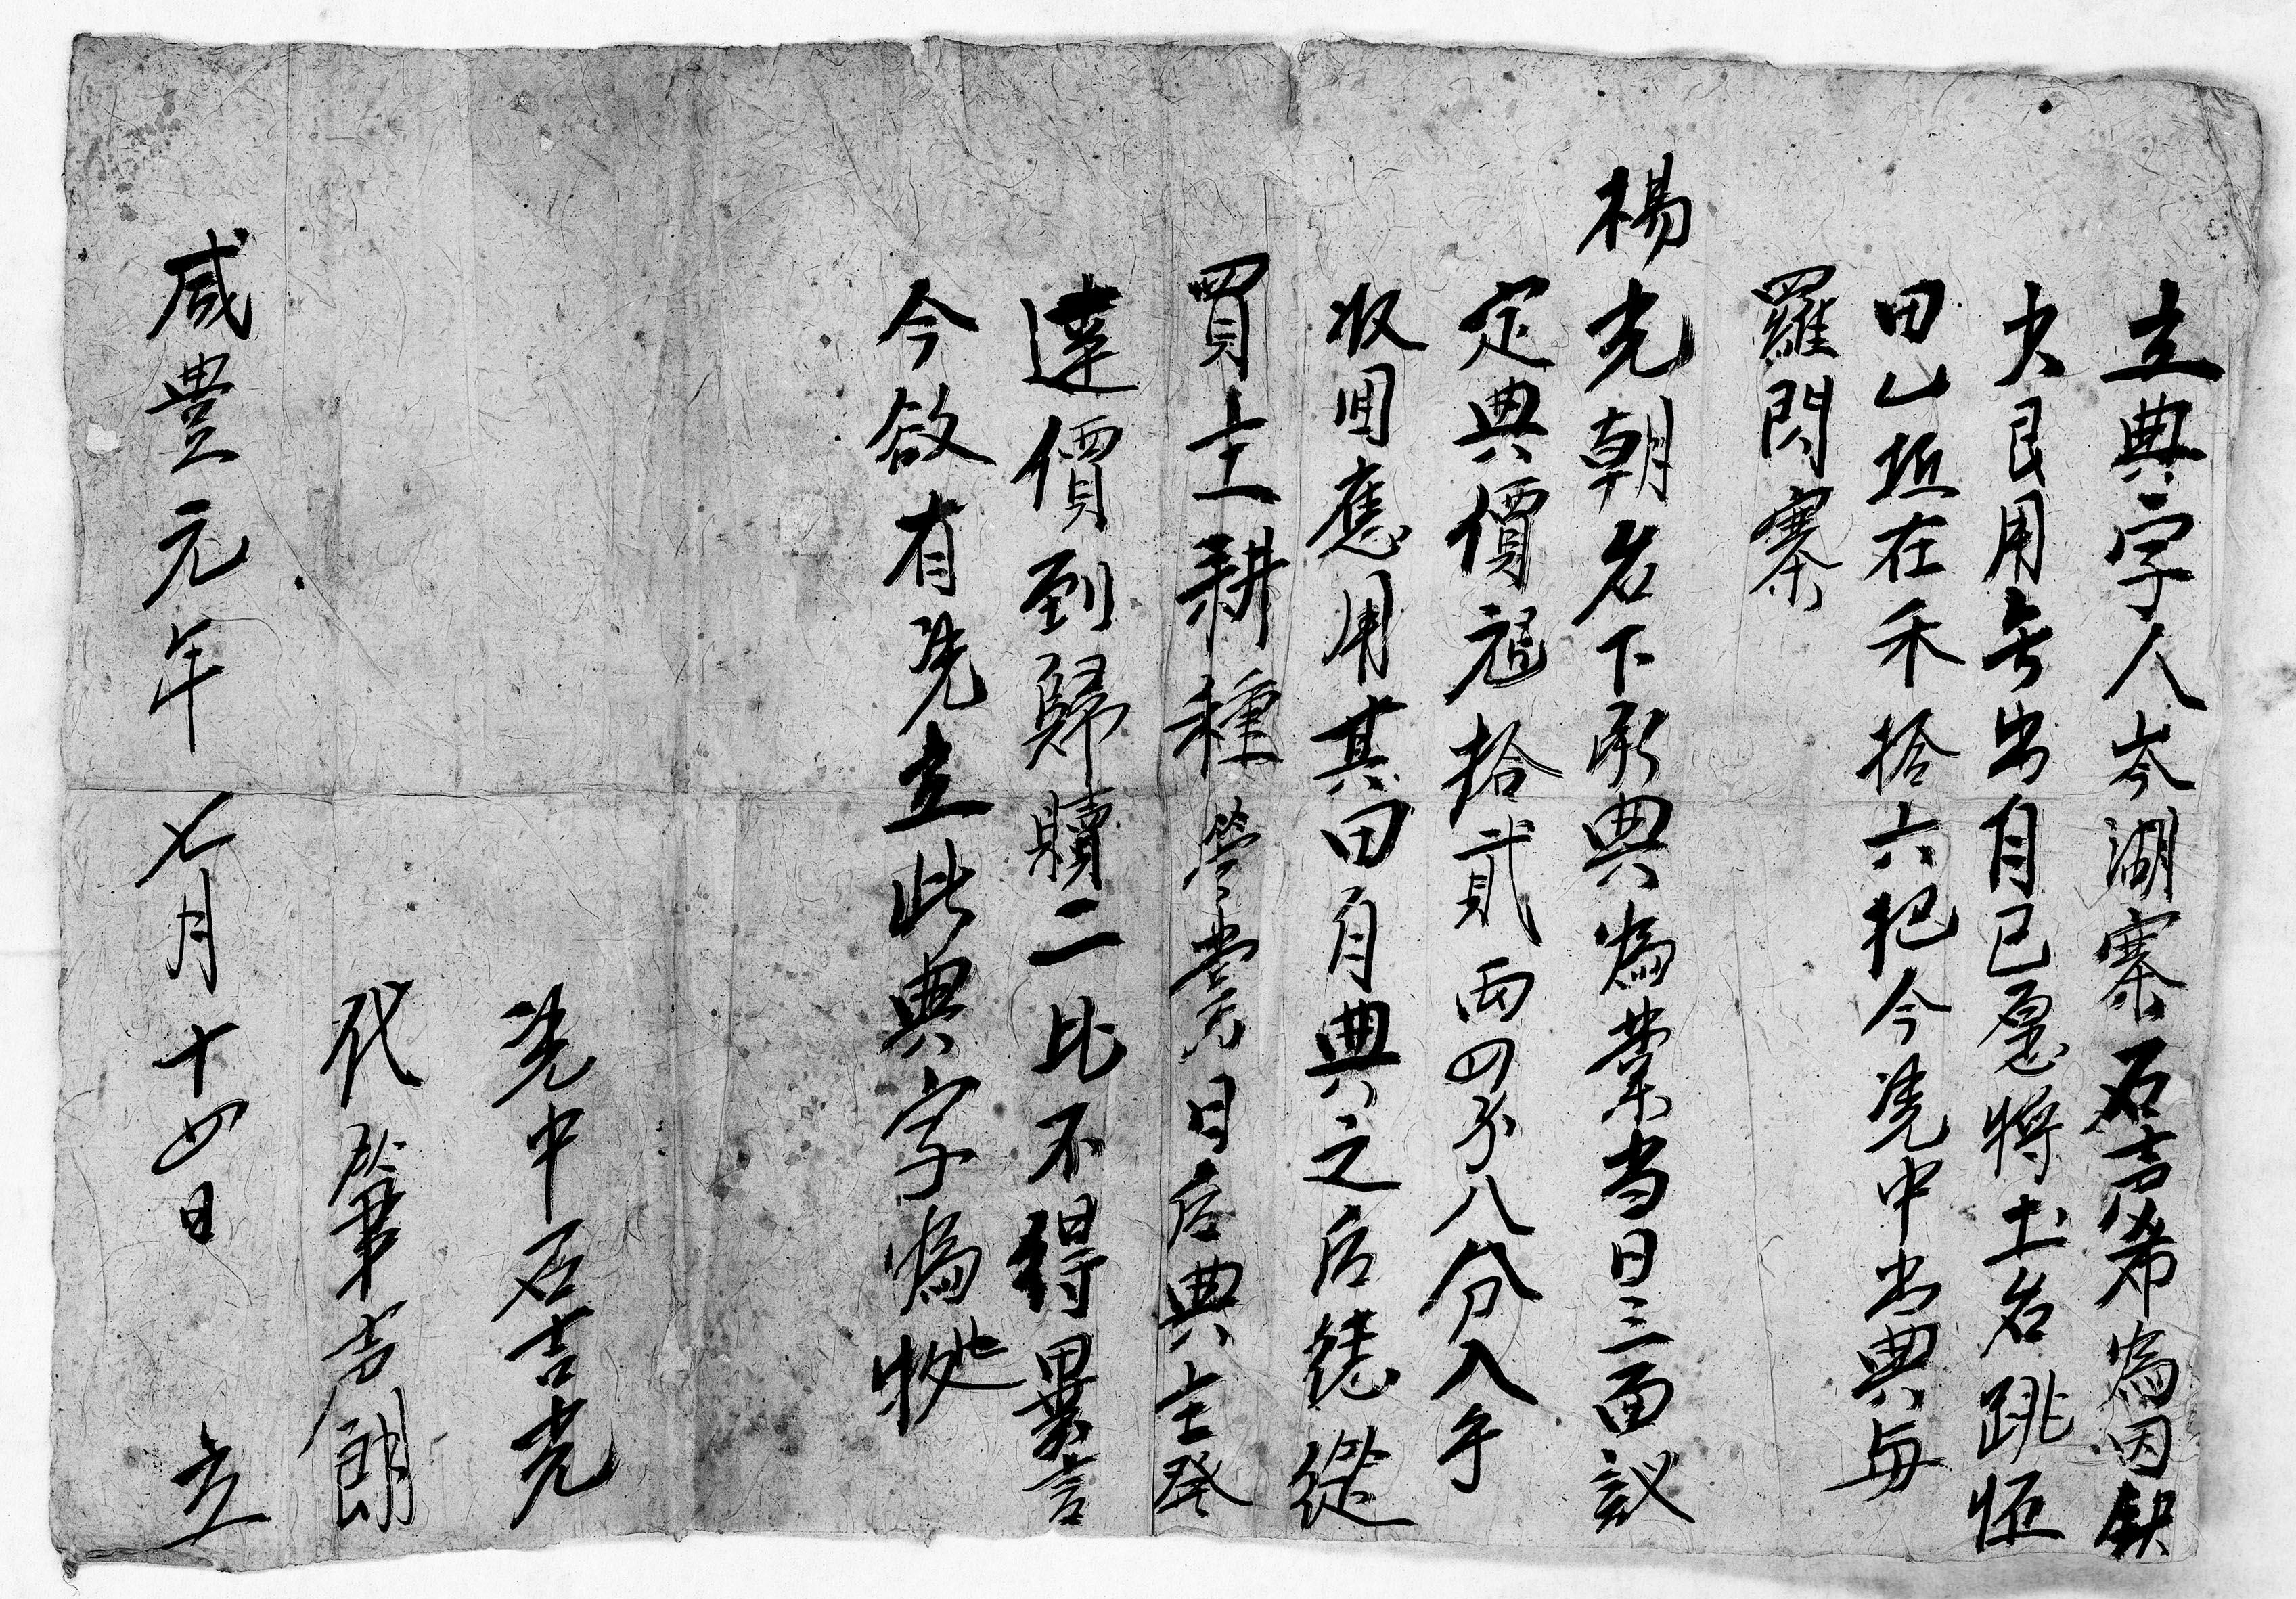 立典字人岑湖寨石吉希為因缺
少艮用無出自己愿將土名跳恒
田乙坵在禾拾六把今憑中出典与
羅閃寨
楊光朝名下承典為業当日三面議
定典價禄拾貳両四分八分入手
收囬應用其田自典之后任從
買主耕種管業日后典主登
達價到歸贖二比不得異言
今欲有凭立此典字為據
凭中石吉光
代筆吉朗
咸豊元年七月十四日 立